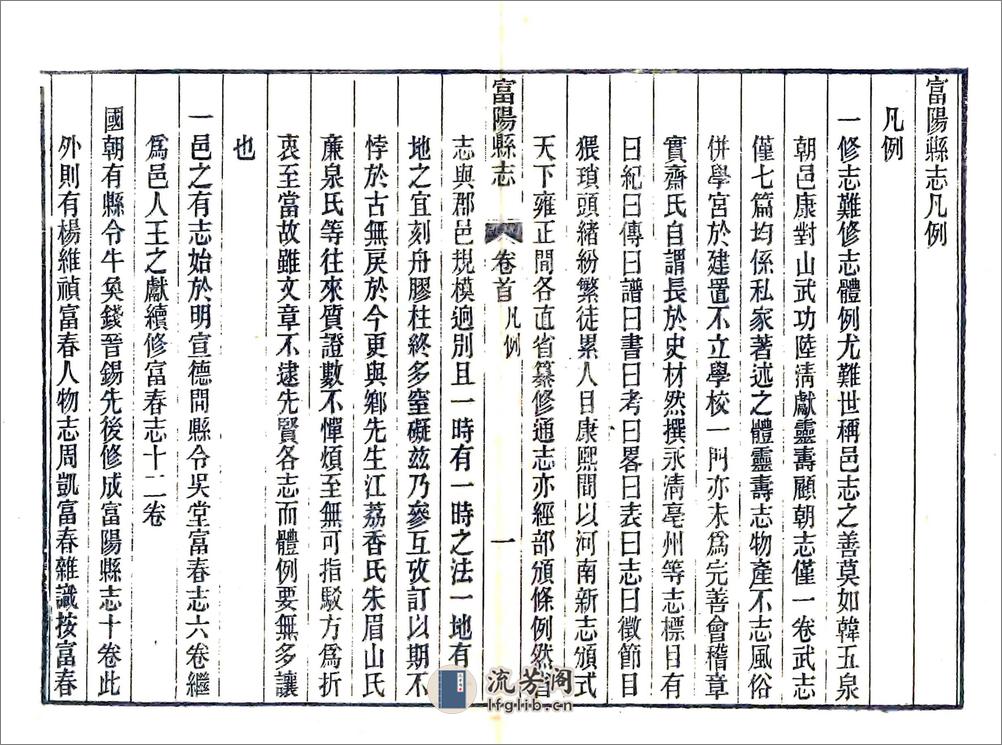 富陽縣志凡例
凡例
一修志難修志體例尤難世稱邑志之善莫如韓五泉
朝邑康對山武功陸淸獻靈壽顧朝志僅一卷武志
僅七篇均係私家著述之體靈壽志物產不志風俗
併學宮於建置不立學校一門亦未爲完善會稽章
實齋氏自謂長於史材然撰永淸亳州等志標目有
曰紀曰傳曰譜曰書曰考曰畧曰表曰志曰徵節目
猥瑣頭緖紛繁徒累人目康熙間以河南新志頒式
天下雍正間各直省纂修通志亦經部頒條例然省
富陽縣志 卷首 凡例 一
志與郡邑規模迥別且一時有一時之法一地有一
地之宜刻舟膠柱終多窒礙茲乃參互攷訂以期不
悖於古無戾於今更與鄉先生江荔香氏朱眉山氏
廉泉氏等往來質證數不憚煩至無可指駁方爲折
衷至當故雖文章不逮先賢各志而體例要無多讓
也
一邑之有志始於明宣德間縣令吳堂富春志六卷繼
爲邑人王之獻續修富春志十二卷
國朝有縣令牛奐錢晉錫先後修成富陽縣志十卷此
外則有楊維禎富春人物志周凱富春雜識按富春
流芳阁
lfglib.cn